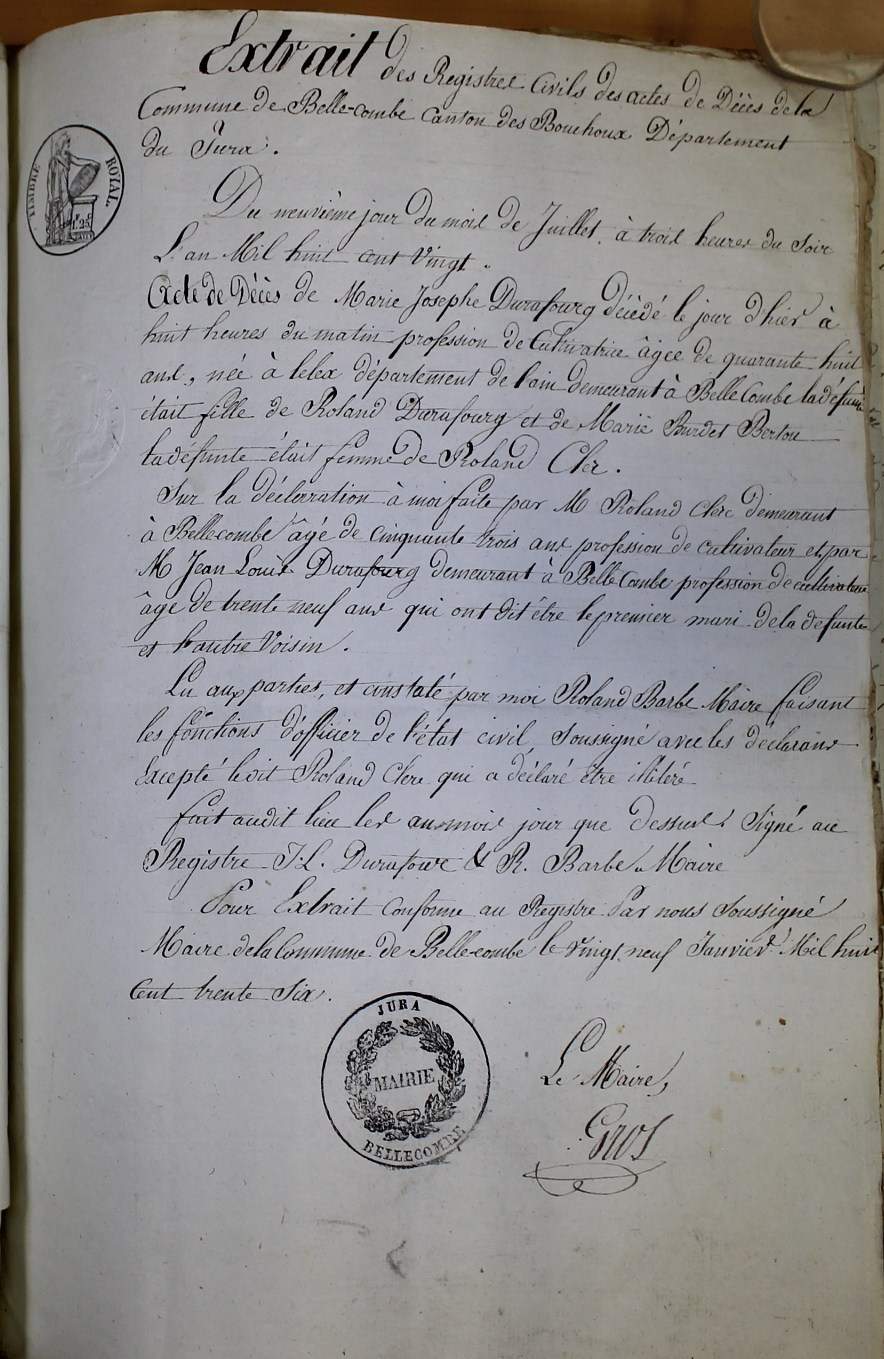 Extrait des Registres Civils des actes de Décès de la
Commune de Belle-combe Canton des Bouchoux Département
du Jura.
TIMBRE ROYAL.
1F 25C
Du neuvième jour du mois de Juillet, à trois heures du Soir
L'an Mil huit cent Vingt.
Acte de Décès de Marie Josephe Durafourg décédé le jour d'hier à
huit heures du matin profession de Cultivatrice âgée de quarante huit
ans, née à lelex département de l'ain demeurant à Belle Combe la défunte
était fille de Roland Durafourg et de Marie Burdet Bertou
la défunte était femme de Roland Cler.
Sur la déclerration à moi faite par M Roland Clerc demeurant
à Bellecombe âgé de Cinquante trois ans profession de cultivateur et par
M Jean Louis Durafourg demeurant à Belle Combe profession de cultivateur
âgé de trente neuf ans qui ont dit être le premier mari de la defunte
et l'autre Voisin.
Lu aux parties, et constaté par moi Roland Barbe Maire faisant
les fonctions d'officier de l'état civil, Soussigné avec les déclarans
Excepté ledit Roland Clere qui a déclaré être illitéré
fait audit lieu les an mois jour que dessus. Signé au
Registre J.L. Durafour & R. Barbe Maire
Pour Extrait Conforme au Registre Par nous Soussigné
Maire de la Commune de Belle-combe le vingt neuf Janvier Mil huit
Cent trente Six.
JURA
MAIRIE
BELLECOMBE
Le Maire,
Gros